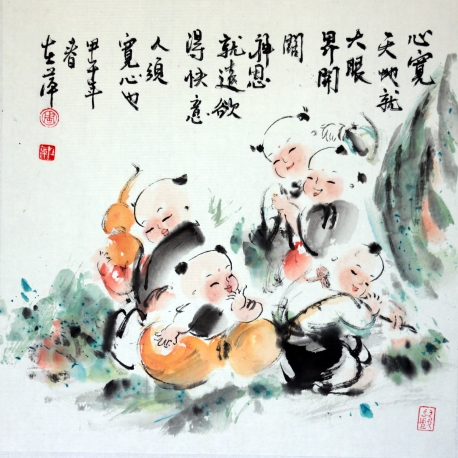 心寬
天地就
大眼
界開
闊
神思
就遠欲
得快意
人須
寬心也
甲午年
春